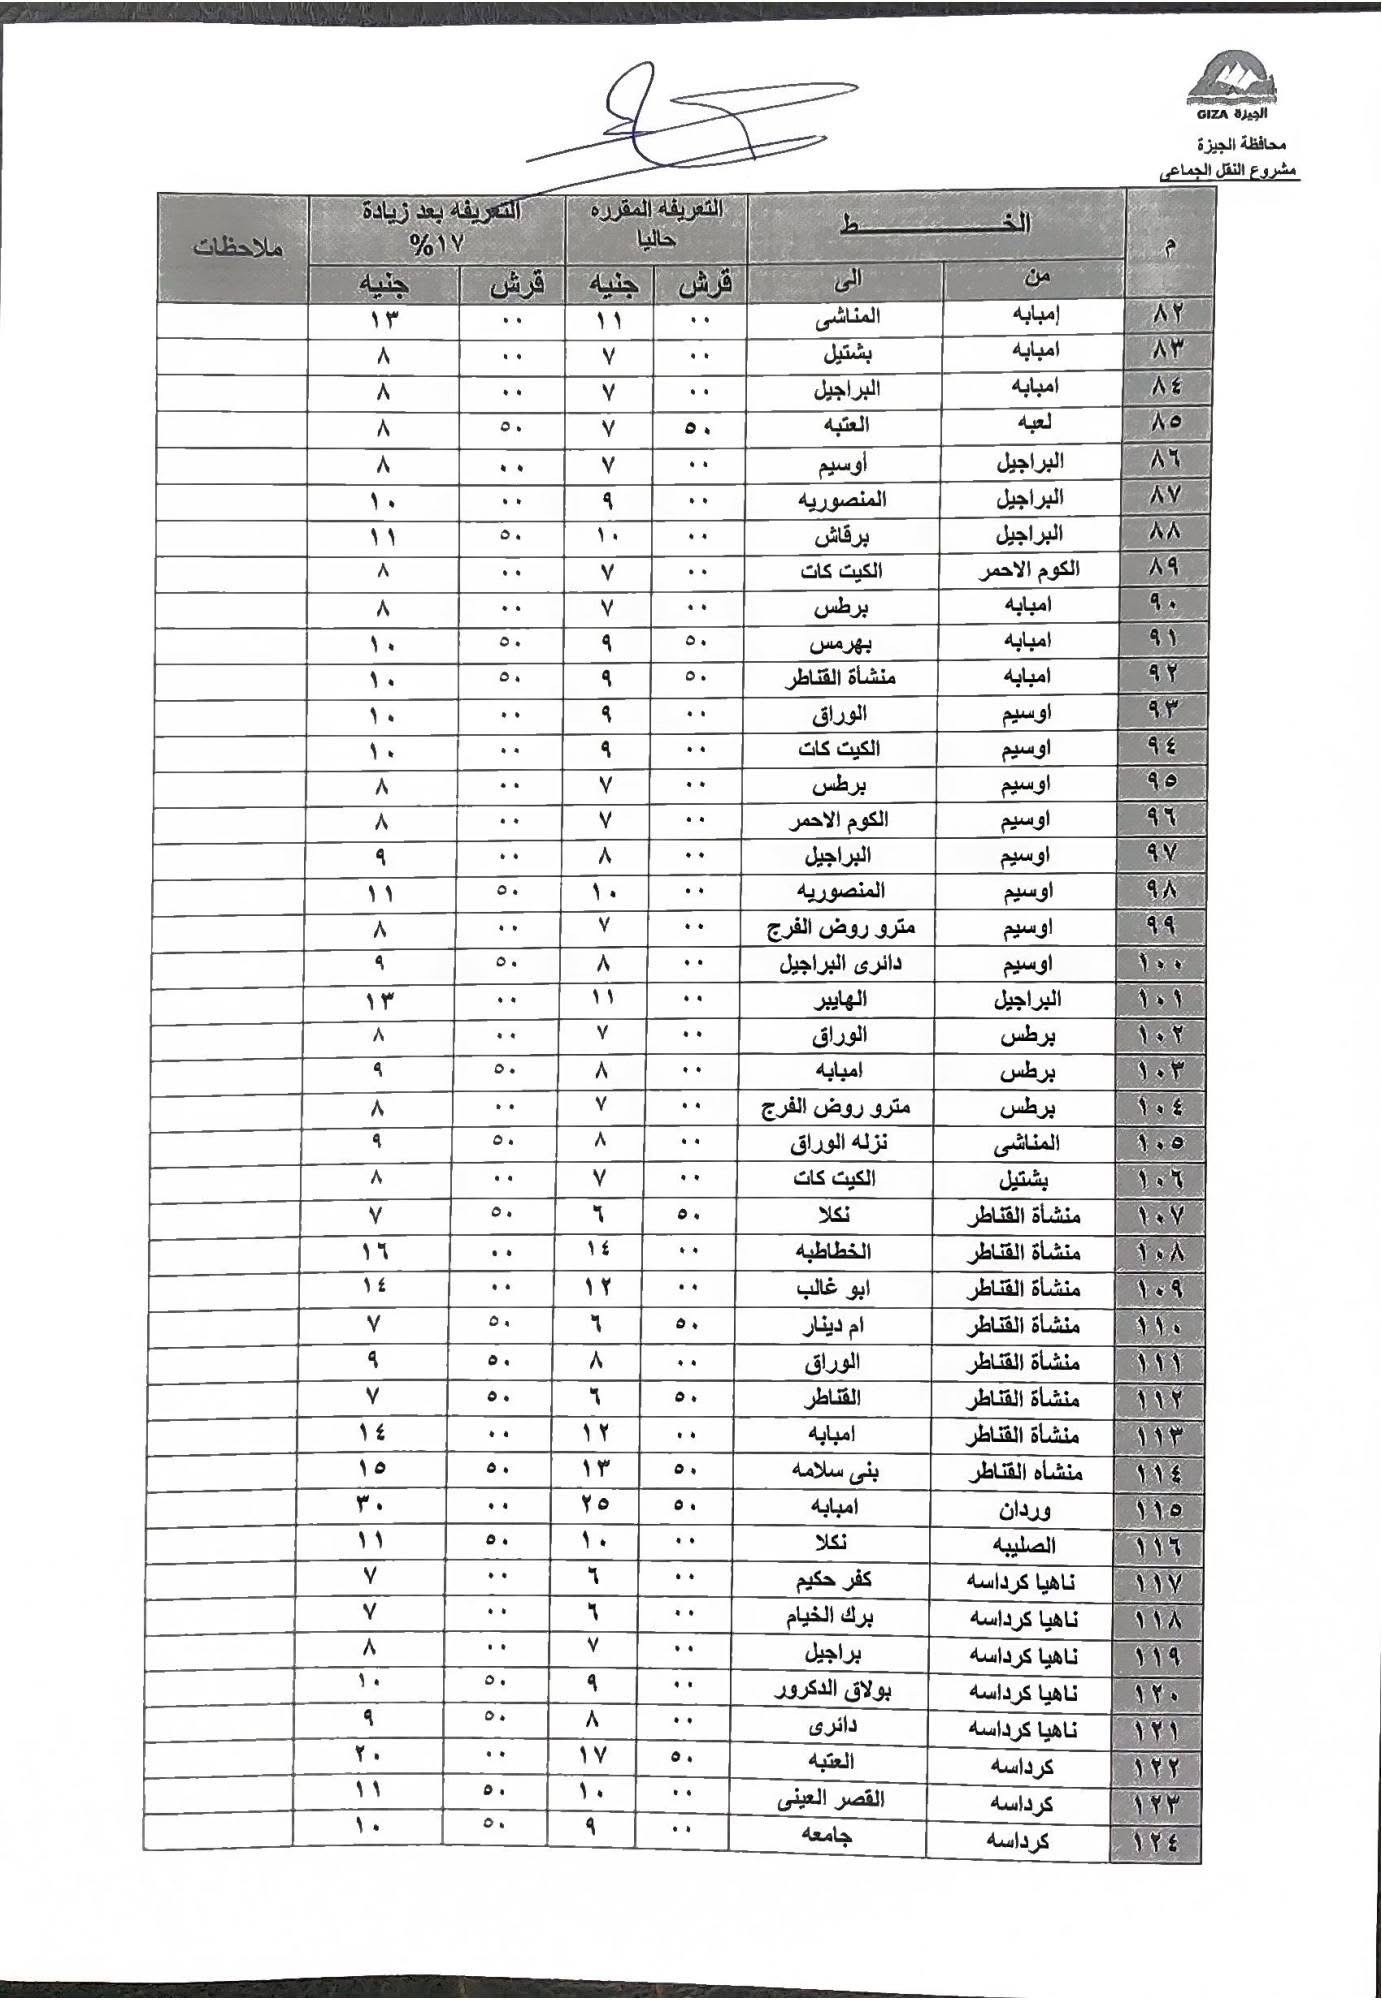 GIZA الجيزة
محافظة الجيزة
مشروع النقل الجماعى
م الخـــــــــــط التعريفه المقرره حاليا التعريفه بعد زيادة ١٧% ملاحظات
من الى قرش جنيه قرش جنيه
٨٢ إمبابه المناشى ٠٠ ١١ ٠٠ ١٣
٨٣ امبابه بشتيل ٠٠ ٧ ٠٠ ٨
٨٤ امبابه البراجيل ٠٠ ٧ ٠٠ ٨
٨٥ لعبه العتبه ٥٠ ٧ ٥٠ ٨
٨٦ البراجيل أوسيم ٠٠ ٧ ٠٠ ٨
٨٧ البراجيل المنصوريه ٠٠ ٩ ٠٠ ١٠
٨٨ البراجيل برقاش ٠٠ ١٠ ٥٠ ١١
٨٩ الكوم الاحمر الكيت كات ٠٠ ٧ ٠٠ ٨
٩٠ امبابه برطس ٠٠ ٧ ٠٠ ٨
٩١ امبابه بهرمس ٥٠ ٩ ٥٠ ١٠
٩٢ امبابه منشأة القناطر ٥٠ ٩ ٥٠ ١٠
٩٣ اوسيم الوراق ٠٠ ٩ ٠٠ ١٠
٩٤ اوسيم الكيت كات ٠٠ ٩ ٠٠ ١٠
٩٥ اوسيم برطس ٠٠ ٧ ٠٠ ٨
٩٦ اوسيم الكوم الاحمر ٠٠ ٧ ٠٠ ٨
٩٧ اوسيم البراجيل ٠٠ ٨ ٠٠ ٩
٩٨ اوسيم المنصوريه ٠٠ ١٠ ٥٠ ١١
٩٩ اوسيم مترو روض الفرج ٠٠ ٧ ٠٠ ٨
١٠٠ اوسيم دائرى البراجيل ٠٠ ٨ ٥٠ ٩
١٠١ البراجيل الهايبر ٠٠ ١١ ٠٠ ١٣
١٠٢ برطس الوراق ٠٠ ٧ ٠٠ ٨
١٠٣ برطس امبابه ٠٠ ٨ ٥٠ ٩
١٠٤ برطس مترو روض الفرج ٠٠ ٧ ٠٠ ٨
١٠٥ المناشى نزله الوراق ٠٠ ٨ ٥٠ ٩
١٠٦ بشتيل الكيت كات ٠٠ ٧ ٠٠ ٨
١٠٧ منشأة القناطر نكلا ٥٠ ٦ ٥٠ ٧
١٠٨ منشأة القناطر الخطاطبه ٠٠ ١٤ ٠٠ ١٦
١٠٩ منشأة القناطر ابو غالب ٠٠ ١٢ ٠٠ ١٤
١١٠ منشأة القناطر ام دينار ٥٠ ٦ ٥٠ ٧
١١١ منشأة القناطر الوراق ٠٠ ٨ ٥٠ ٩
١١٢ منشأة القناطر القناطر ٥٠ ٦ ٥٠ ٧
١١٣ منشأة القناطر امبابه ٠٠ ١٢ ٠٠ ١٤
١١٤ منشأه القناطر بنى سلامه ٥٠ ١٣ ٥٠ ١٥
١١٥ وردان امبابه ٥٠ ٢٥ ٠٠ ٣٠
١١٦ الصليبه نكلا ٠٠ ١٠ ٥٠ ١١
١١٧ ناهيا كرداسه كفر حكيم ٠٠ ٦ ٠٠ ٧
١١٨ ناهيا كرداسه برك الخيام ٠٠ ٦ ٠٠ ٧
١١٩ ناهيا كرداسه براجيل ٠٠ ٧ ٠٠ ٨
١٢٠ ناهيا كرداسه بولاق الدكرور ٠٠ ٩ ٥٠ ١٠
١٢١ ناهيا كرداسه دائرى ٠٠ ٨ ٥٠ ٩
١٢٢ كرداسه العتبه ٥٠ ١٧ ٠٠ ٢٠
١٢٣ كرداسه القصر العينى ٠٠ ١٠ ٥٠ ١١
١٢٤ كرداسه جامعه ٠٠ ٩ ٥٠ ١٠